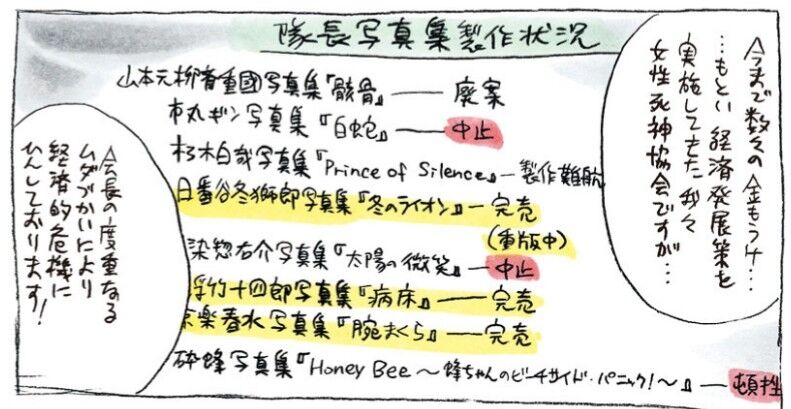 隊長写真集製作状況
今まで数々の金もうけ…
…もとい経済発展策を
実施してきた我々
女性死神協会ですが…
山本元柳斎重國写真集『骸骨』――廃案
市丸ギン写真集『白蛇』――中止
朽木白哉写真集『Prince of Silence』―製作難航
日番谷冬獅郎写真集『冬のライオン』―完売
(重版中)
染惣右介写真集『太陽の微笑』―中止
浮竹十四郎写真集『病床』――完売
京楽春水写真集『腕まくら』――完売
砕蜂写真集『Honey Bee～蜂ちゃんのビーチサイド・パニック!～』―頓挫
会長の度重なる
ムダづかいにより
経済的危機に
ひんしております!